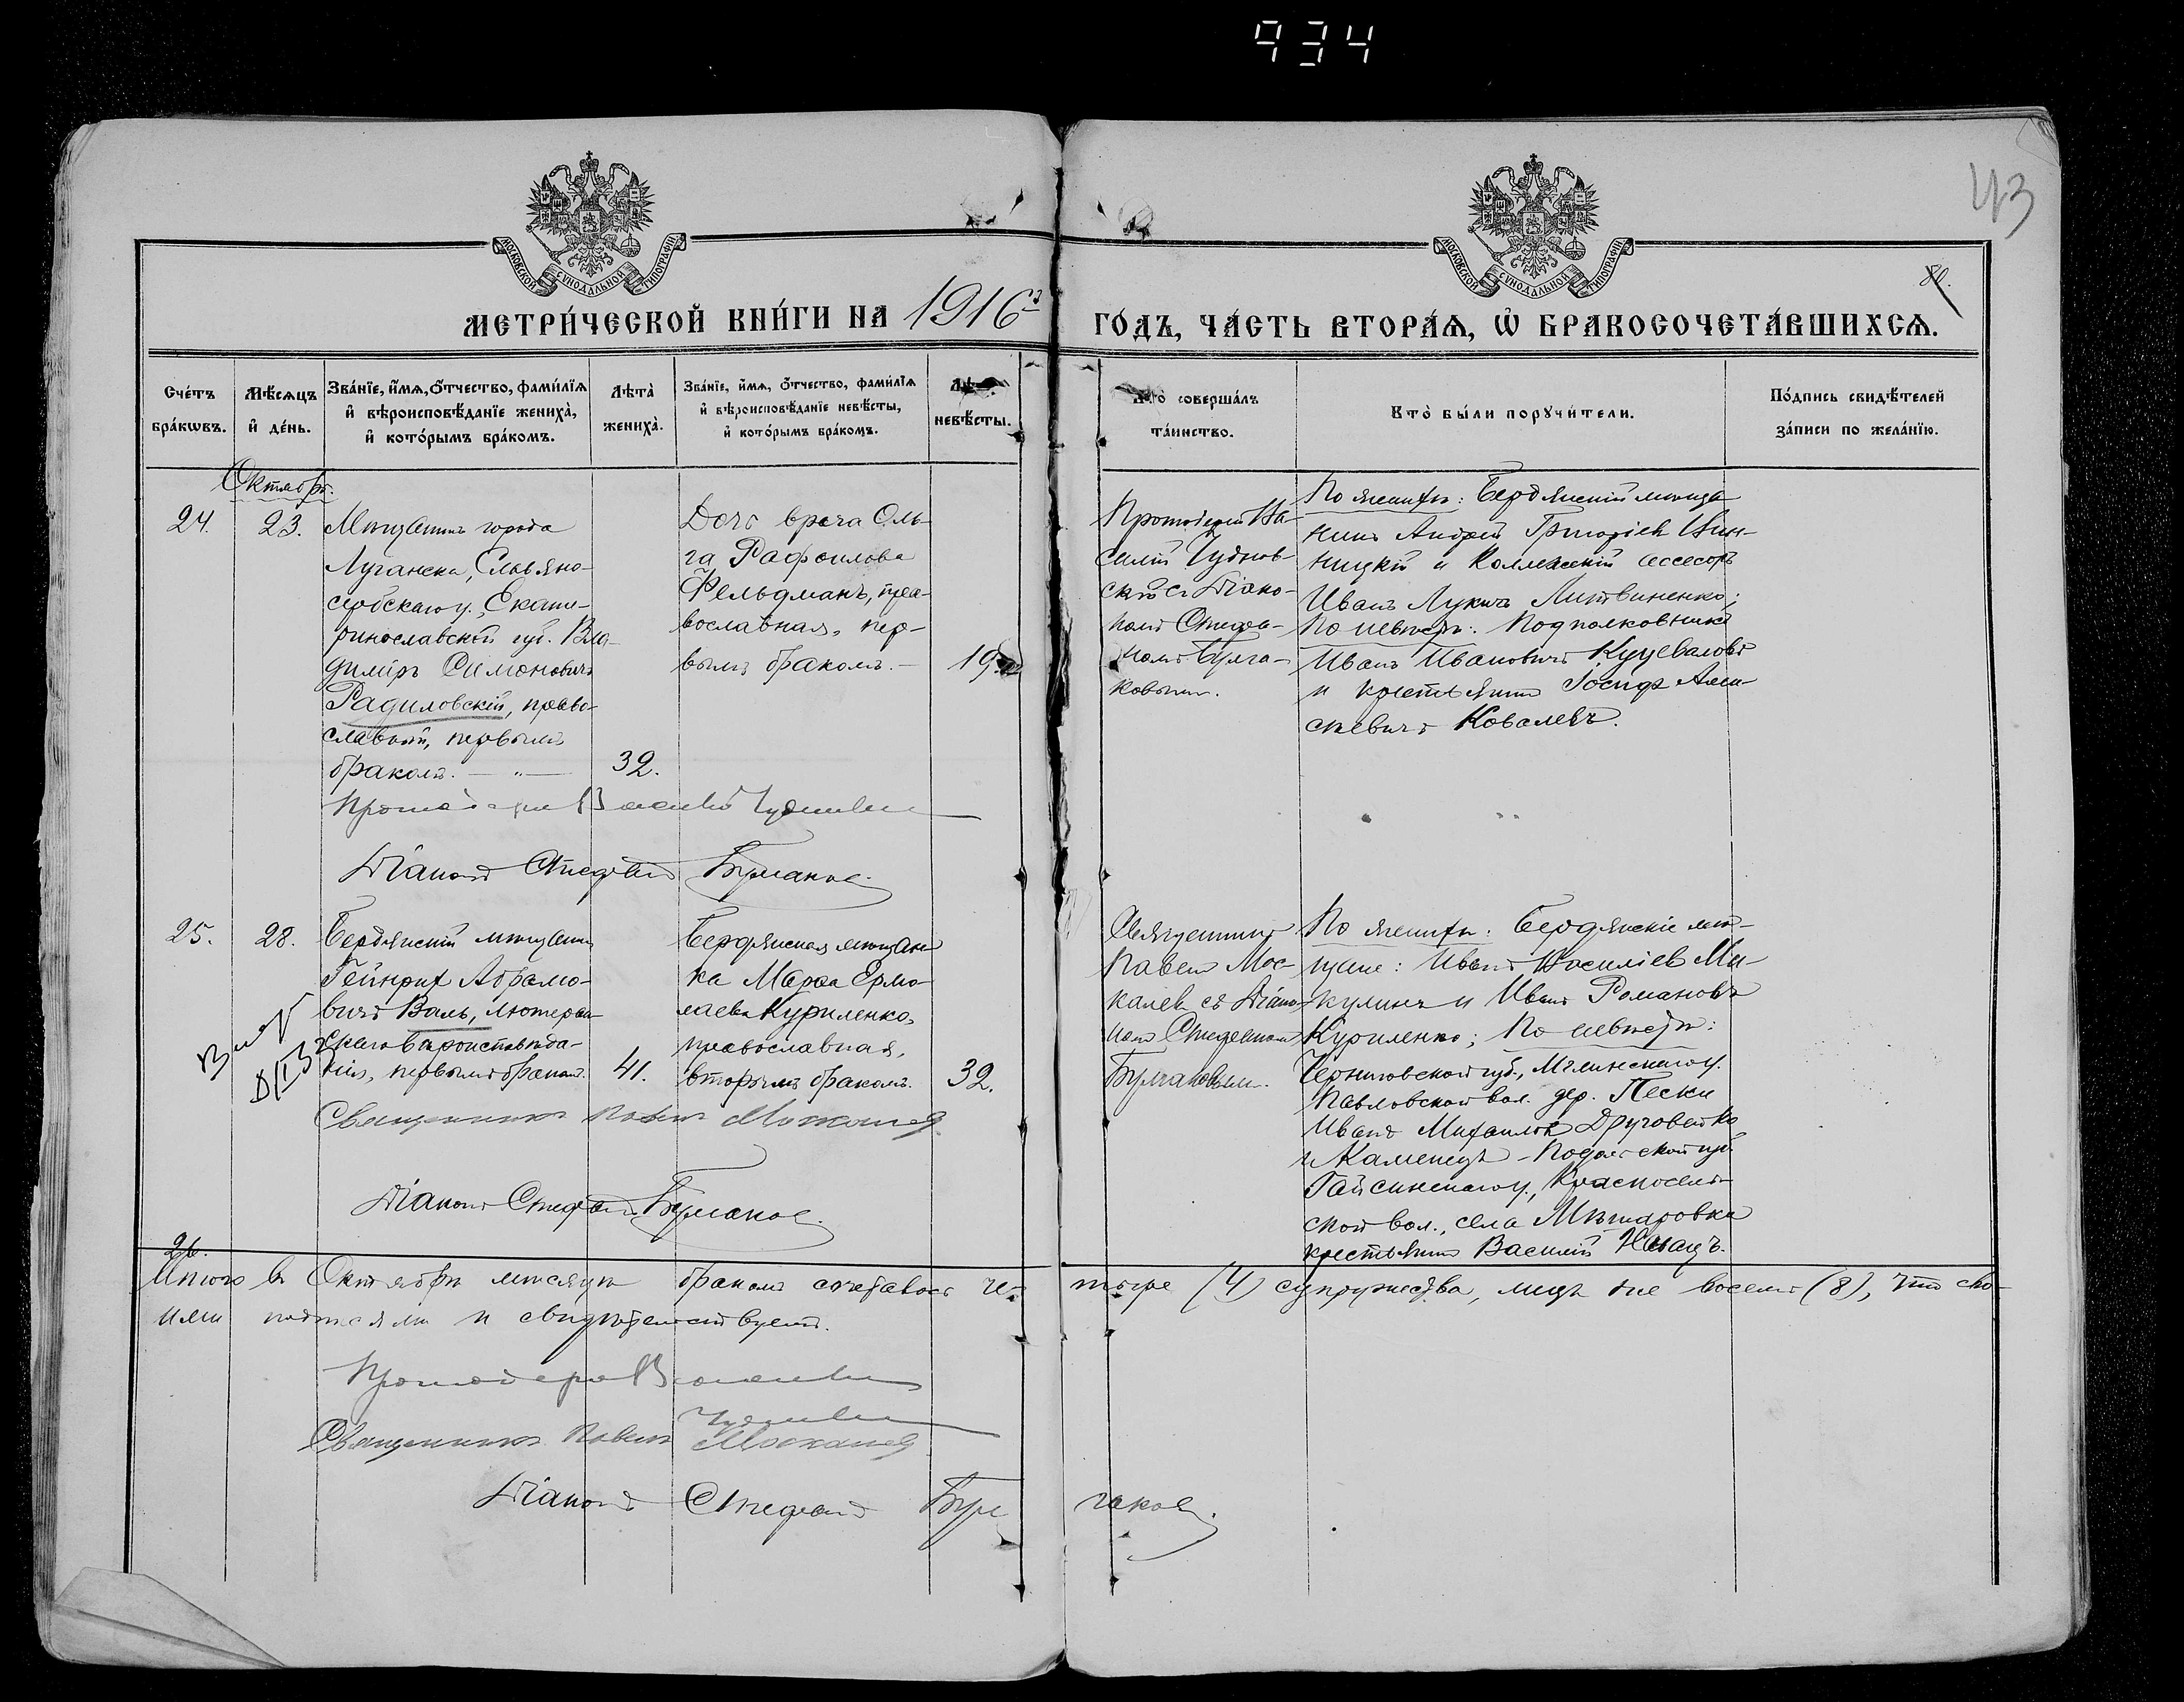 934
43
80.
МОСКОВСКОЙ СѴНОДАЛЬНОЙ ТИПОГРАФІИ
МОСКОВСКОЙ СѴНОДАЛЬНОЙ ТИПОГРАФІИ
МЕТРИ́ЧЕСКОЙ КНИ́ГИ НА 1916 ГО́ДЪ, ЧА́СТЬ ВТОРА́Ѧ, Ѡ҆ БРАКОСОЧЕТА́ВШИХСѦ.
Сче́тъ
бра́кѡвъ.
Мѣ́сѧцъ
и҆ де́нь.
Зва́нїе, и҆́мѧ, ѻ҆́тчество, фами́лїѧ
и҆ вѣроисповѣ́данїе жениха̀,
и҆ кото́рымъ бра́комъ.
Лѣта̀
жениха̀.
Зва́нїе, и҆́мѧ, ѻ҆́тчество, фами́лїѧ
и҆ вѣроисповѣ́данїе невѣ́сты,
и҆ кото́рымъ бра́комъ.
невѣ́сты.
Кто̀ соверша́лъ
та́инство.
Кто̀ бы́ли порꙋчи́тели.
По́дпись свидѣ́телей
за́писи по жела́нїю.
Октябрь.
24.
23.
Мѣщанинъ города
Луганска, Славяно-
сербскаго у., Екате-
ринославской губ. Вла-
димiръ Симоновичъ
Радиловскій, право-
славный, первымъ
бракомъ. — „ —
32.
Дочь врача Оль-
га Рафаилова
Фельдманъ, пра-
вославная, пер-
вымъ бракомъ. —
19.
Протоіерей Ва-
силій Чуднов-
скій съ Діако-
номъ Стефа-
номъ Булга-
ковымъ.
По женихѣ: Бердянскій мѣща-
нинъ Андрей Григоріев Вин-
ницкій и Коллежскій ассесоръ
Иванъ Лукичъ Литвиненко;
По невѣстѣ: Подполковникъ
Иванъ Ивановичъ Куцеваловъ
и крестьянинъ Іосифъ Але-
ксѣевичъ Ковалевъ.
Протоіерей Василій Чудновскій
Діаконъ Стефанъ Булгаковъ.
25.
28.
Бердянскій мѣщанинъ
Гейнрих Абрамо-
вичъ Валь, лютеран-
скаго вѣроисповѣда-
нія, первымъ бракомъ.
41.
Бердянская мѣщан-
ка Марѳа Ермо-
лаева Куриленко,
православная,
вторымъ бракомъ.
32.
Священникъ
Павелъ Мос-
калевъ съ Діако-
номъ Стефаномъ
Булгаковымъ.
По женихѣ: Бердянскіе мѣ-
щане: Иванъ Василіев Ми-
кулинъ и Иванъ Романовъ
Куриленко; По невѣстѣ:
Черниговской губ., Мглинскаго у.
Павловской вол. дер. Пески
Иванъ Михаиловъ
и Каменецъ-Подольской губ.
Гайсинскаго у., Красносель-
ской вол., села
крестьянинъ Василій
Священникъ Павелъ Москалевъ
Діаконъ Стефанъ Булгаковъ.
26.
Итого въ Октябрѣ мѣсяцѣ бракомъ сочеталось че-тыре (4) супружества, лицъ же восемь (8), что сво-
ими подписями и свидѣтельствуемъ.
Протоіерей Василій
Чудновскій
Священникъ Павелъ Москалевъ
Діаконъ Стефанъ Булгаковъ.